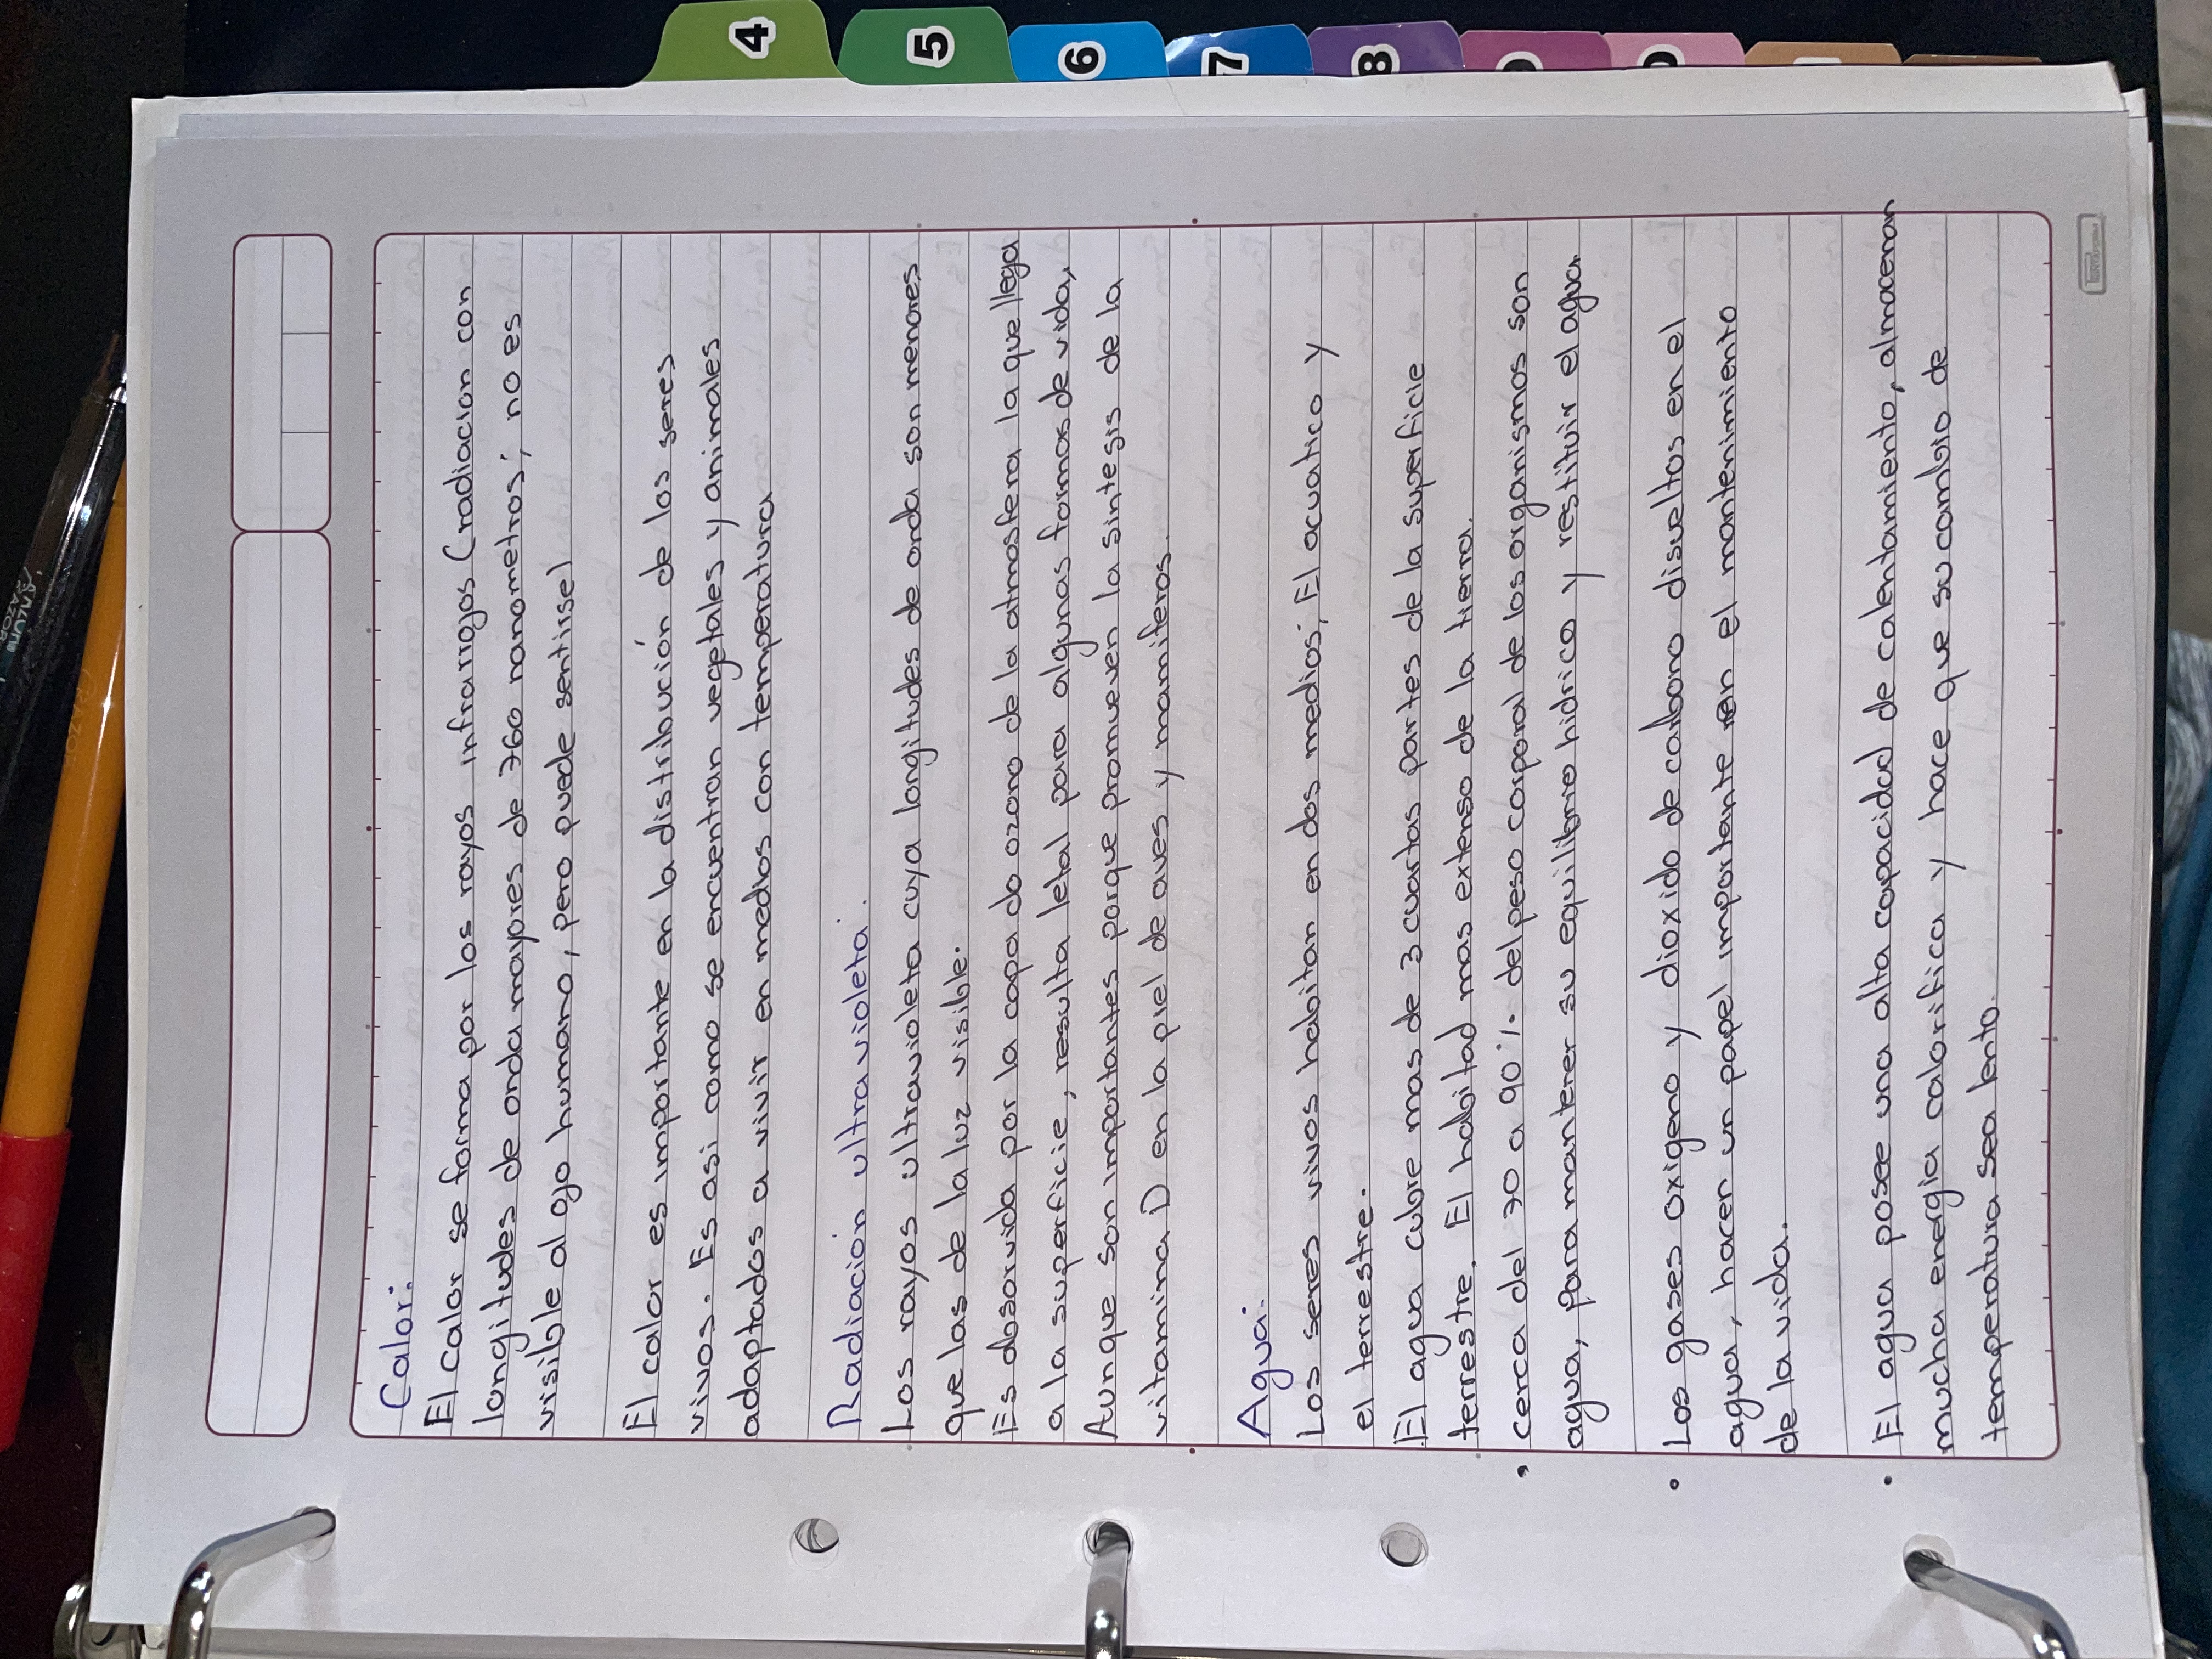 4
5
6
7
8
Calor:
El calor se forma por los rayos infrarrojos (radiacion con
longitudes de onda mayores de 760 nanometros; no es
visible al ojo humano, pero puede sentirse)
El calor es importante en la distribución de los seres
vivos. Es asi como se encuentran vegetales y animales
adaptados a vivir en medios con temperatura
Radiación ultravioleta.
Los rayos ultravioleta cuya longitudes de onda son menores
que las de la luz visible.
Es absorvida por la capa do ozono de la atmosfera la que llega
a la superficie, resulta letal para algunas formas de vida,
Aunque son importantes porque promueven la sintesis de la
vitamina D en la piel de aves y mamiferos.
Agua:
Los seres vivos habitan en dos medios; El acuatico y
el terrestre.
El agua cubre mas de 3 cuartas partes de la superficie
terrestre. El habitad mas extenso de la tierra.
• cerca del 70 a 90% del peso corporal de los organismos son
agua, para mantener su equilibrio hidrico y restituir el agua
• Los gases oxigeno y dioxido de carbono disueltos en el
agua, hacen un papel importante en el mantenimiento
de la vida.
• El agua posee una alta capacidad de calentamiento, almacenan
mucha energia calorifica y hace que su cambio de
temperatura sea lento.